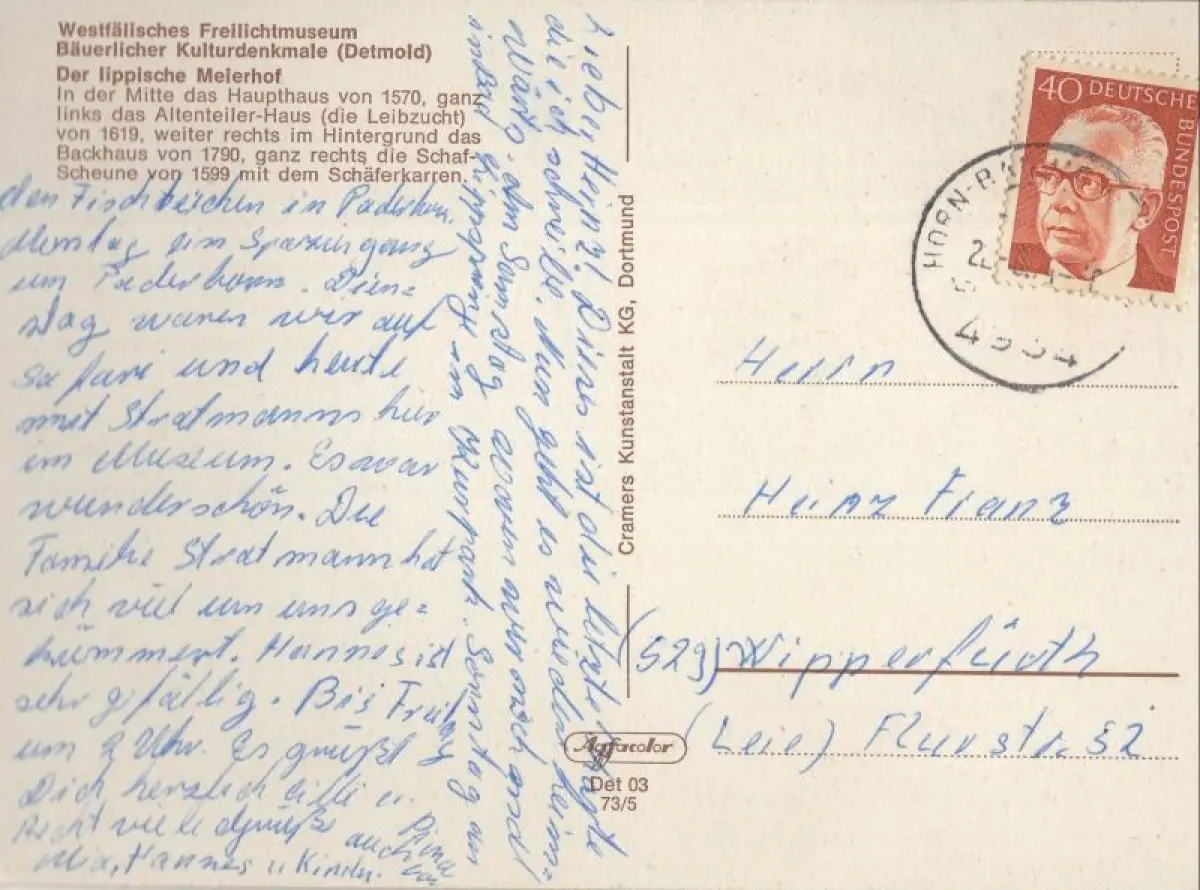 Westfälisches Freilichtmuseum
Bäuerlicher Kulturdenkmale (Detmold)
Der lippische Meierhof
In der Mitte das Haupthaus von 1570, ganz
links das Altenteiler-Haus (die Leibzucht)
von 1619, weiter rechts im Hintergrund das
Backhaus von 1790, ganz rechts die Schaf-
Scheune von 1599 mit dem Schäferkarren.
Lieber Heinz! Dieses ist die letzte Karte
die ich schreibe. Nun geht es wieder heim=
wärts. Am Samstag waren wir noch
in Bad Lippspringe im Kurpark. Sonntag an
den Fischteichen in Paderborn.
Montag ein Spaziergang
um Paderborn. Dien=
stag waren wir auf
Safari und heute
mit Stratmanns hier
im Museum. Es war
wunderschön. Die
Familie Stratmann hat
sich viel um uns ge=
kümmert. Hannes ist
sehr gefällig. Bis Freitag
um Uhr. Es grüßt
Dich herzlich Cilli u.
Recht viele Grüße auch von
Mia, Hannes u Kinder.
Cramers Kunstanstalt KG, Dortmund
Agfacolor
Det 03
73/5
40 DEUTSCHE BUNDESPOST
HORN-BAD
4934
Herrn
Heinz Franz
(529) Wipperfürth
(Leie) Flurstr. 52